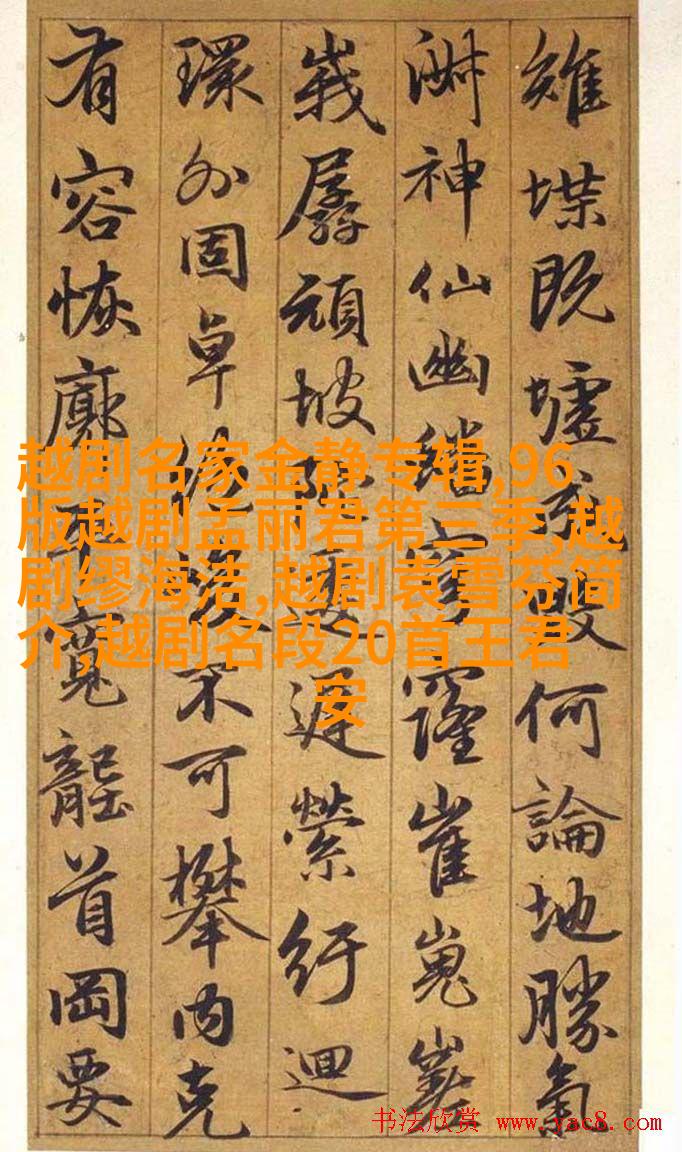 雉堞既墟何論地勝氣
神仙幽崔嵬
峩孱頑坡遲縈紆迴
環外固卓不可攀内克
有容恢廓寬首岡要
越剧名家金静专辑,96
版越剧孟丽君第三季,越
剧缪海洁,越剧袁雪芬简
介,越剧名段20首王君
安
书法欣赏 www.yac8.com